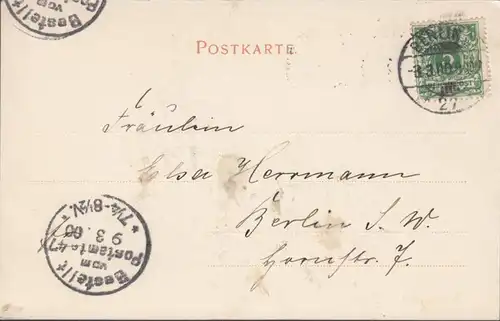 Bestellt
vom
POSTKARTE
BERLIN
5
27
Fräulein
Elsa Herrmann
Berlin S. W.
Hornstr. 7.
Bestellt
vom
Postamte 47
9 3. 00
7¼-8½N.